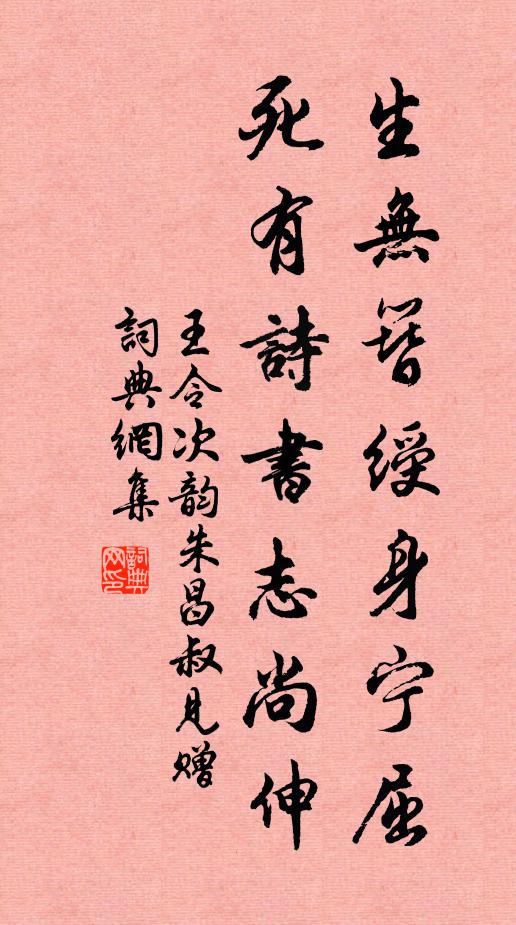 生無簪綬身宁屈
死有詩書志尚伸
王令次韵朱昌叔見贈
詞典網集
詞典
网印